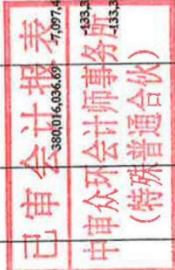 已审会计报表
中审众环会计师事务所
(特殊普通合伙)
380,016,036.69
-7,097,4
-133,3
-133,3